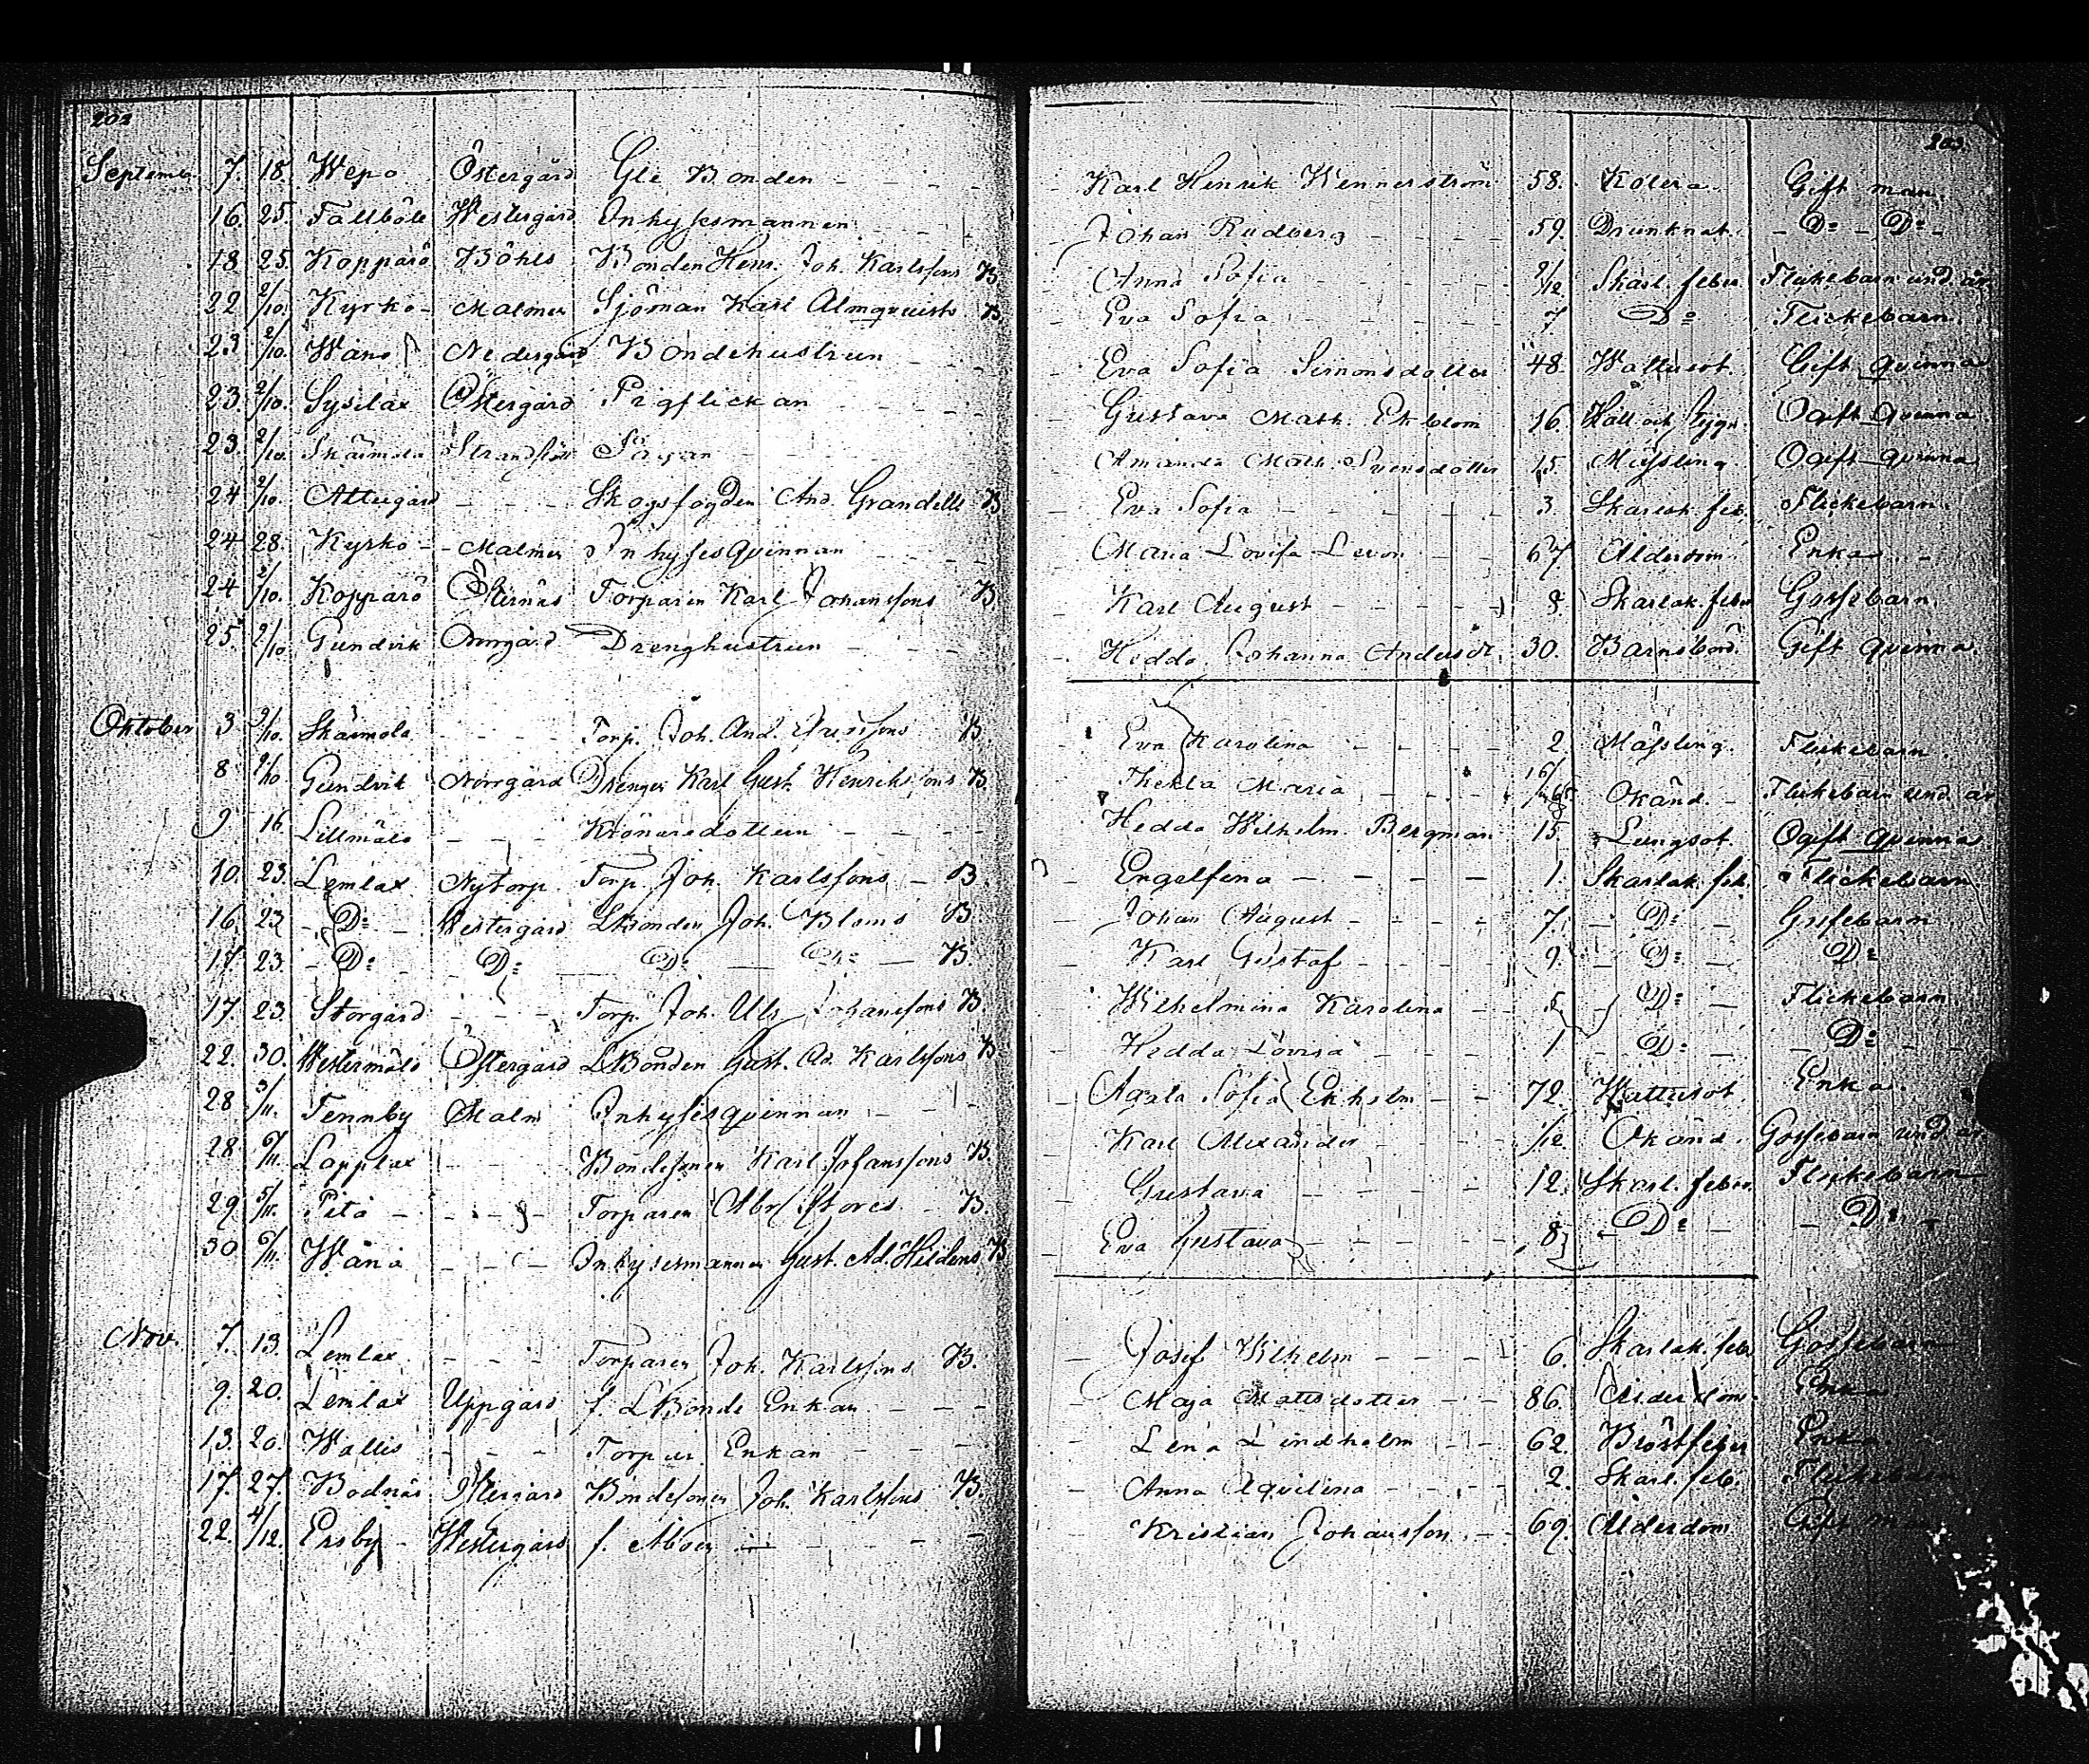 202
203
September 7. 18. Wepo Östergård Gle Bonden - - - - Karl Henrik Wennerström 58. Kolera Gift man
16. 25. Fallböle Westergård Inhysesmannen - - - Johan Rudberg - - - 59. Drunknat. - Do - Do -
18. 25. Kopparö Böhls Bonden Henr. Joh. Karlssons B. - Anna Sofia - - - - 9/12 Skarl. feber Flickebarn und. år
22 2/10. Kyrko- Malmen Sjöman Karl Almqvists B. - Eva Sofia - - - - 7 Do Flickebarn
23. 2/10. Wäno Nedergård Bondehustrun - - - Eva Sofia Simonsdotter 48. Wattusot Gift qvinna
23. 2/10. Sysilax Östergård Pigflickan - - - - Gustava Math. Ekblom 16. Håll och Stygn Ogift qvinna
23. 2/10. Skärmola - Amanda Math. Svensdotter 15. Mässling Ogift qvinna
24 2/10. Attugård - - - Skogsfogden And. Grandells B - Eva Sofia - - - - 3. Skarlak. feb. Flickebarn
24 28. Kyrko- - Malmen Inhysesqvinnan - - - Maria Lovisa Levon - - 67 Ålderdom Enka
24 2/10. Kopparö Östernäs Torparen Karl Johanssons B - Karl August - - - - Skarlak. feber Gossebarn
25. 2/10 Gundvik Drenghustrun - - - Hedda Johanna Andersdr. 30. Barnsbörd. Gift qvinna
Oktober 3 9/10. Skärmola - - - - Torp. Joh. And. B. Eva Karolina - - - - 2. Mässling. Flickebarn
8 9/10 Gundvik Norrgård Drengen Karl Gust. Henrikssons B. Thekla Maria - - - Okänd - Flickebarn und. år
9 16. Lillmälo - - - Hedda Wilhelm. Bergman 15 Lungsot. Ogift qvinna
10. 23. Lemlax Nytorp. Torp. Joh. Karlssons - B. - Engelfena - - - - 1. Skarlak. feb. Flickebarn
16. 23 - Do - Westergård LBonden Joh. Bloms B. - Johan August - - - - 7. - Do - Gossebarn
17. 23. - Do - - Do - - Do - - Do - B. - Karl Gustaf - - - - 9. - Do - Do
17. 23. Storgård - - - Torp. Joh. Ulr. Johanssons B. Wilhelmina Karolina - - 5 Do - Flickebarn
22. 30. Westermälo Östergård LBonden Gust. Ad. Karlssons B. - Hedda Lovisa - - - - 1 - Do - - Do - -
28 3/11. Tennby Malm Inhysesqvinnan - - - Agata Sofia Ekholm - - 72. Wattusot. Enka
28. 6/11. Lapplax - - - Bondesonen Karl Johanssons B. Karl Alexander - - - 1/12 Okänd. Gossebarn und. år
29. 5/11. Pitö - - - - Torparen Abr. Stores - B. Gustava - - - - 12. Skarl. feber Flickebarn
30 6/11. Wänö - - - Inhysesmannen Gust. Ad. Hildens B - Eva Gustava - - - - 8 - Do - - Do -
Nov. 7. 13. Lemlax - - - Torparen Joh. Karlssons B. - Josef Wilhelm - - - - 6. Skarlak. feber Gossebarn
9. 20. Lemlax Uppgård f. LBonde Enkan - - - - Maja Mattsdotter - - 86. Ålderdom. Enka
13. 20. Wallis - - - Torpar Enkan - - - - Lena Lindholm - - 62. Bröstfeber Enka
17. 27. Bodnäs Östergård Bondesonen Joh. Karlssons B. - Anna Aqvilina - - - 2. Skarl. feb. Flickebarn
22. 4/12. Ersby - Westergård f. - - - - Kristian Johansson - - 69. Ålderdom Gift man